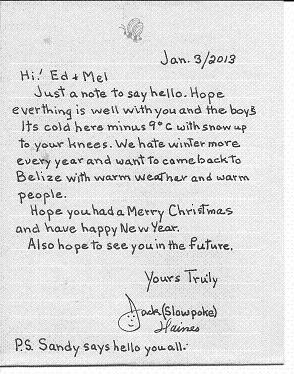 Jan. 3/2013
Hi! Ed + Mel
Just a note to say hello. Hope
everthing is well with you and the boys
Its cold here minus 9°C with snow up
to your knees. We hate winter more
every year and want to come back to
Belize with warm weather and warm
people.
Hope you had a Merry Christmas
and have happy New Year.
Also hope to see you in the future.
Yours Truly
Jack (Slowpoke)
Haines
P.S. Sandy says hello you all.